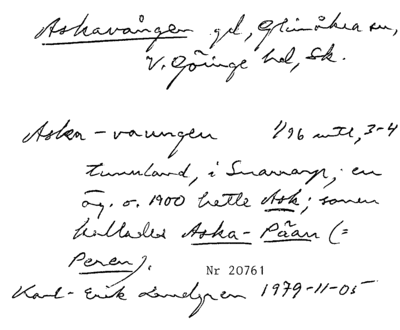 Askavången gd, Glimåkra sn,
V. Göinge hd, Sk.
Aska-vaungen 1/96 mtl, 3-4
tunnland, i Snararp, en
äg. o. 1900 hette Ask; sonen
kallades Aska-Pään (=
Peren).
Nr 20761
Karl-Erik Lundgren 1979-11-05